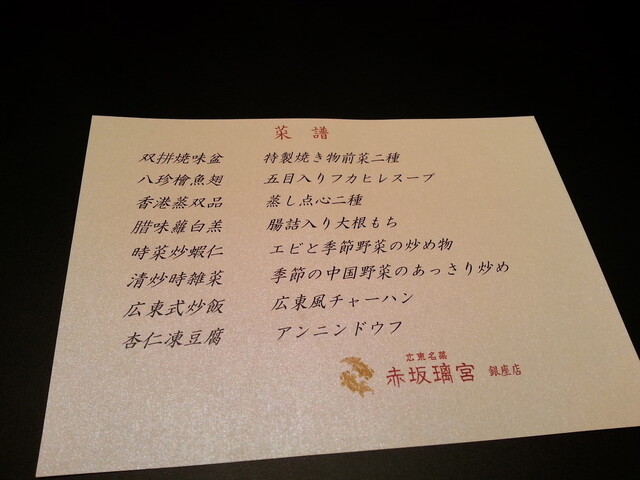 菜譜
双拼焼味盆 特製焼き物前菜二種
八珍檜魚翅 五目入りフカヒレスープ
香港蒸双品 蒸し点心二種
腊味蘿白羔 腸詰入り大根もち
時菜炒蝦仁 エビと季節野菜の炒め物
清炒時雑菜 季節の中国野菜のあっさり炒め
広東式炒飯 広東風チャーハン
杏仁凍豆腐 アンニンドウフ
広東名菜
赤坂璃宮 銀座店